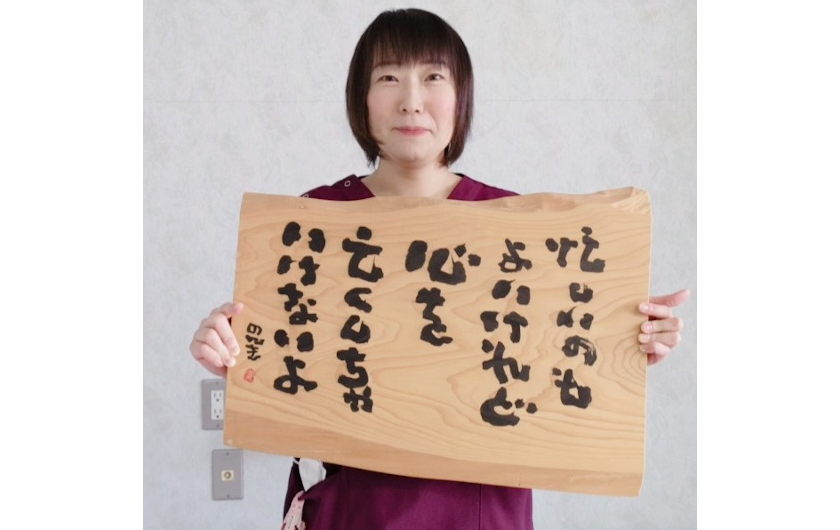 忙しいのは
よいけれど
心を
亡くしちゃ
いけないよ